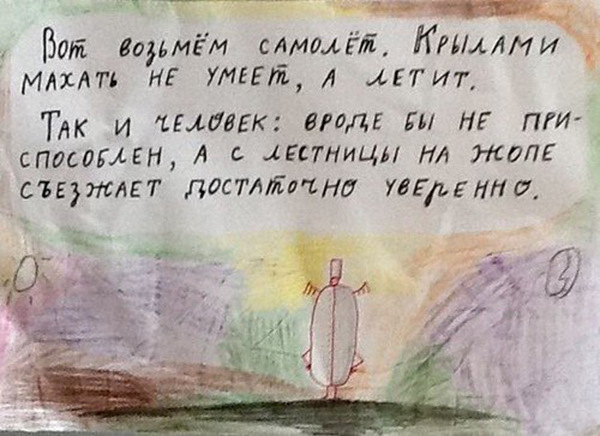 Вот возьмём самолёт. Крылами
махать не умеет, а летит.
Так и человек: вроде бы не при-
способлен, а с лестницы на жопе
съезжает достаточно уверенно.